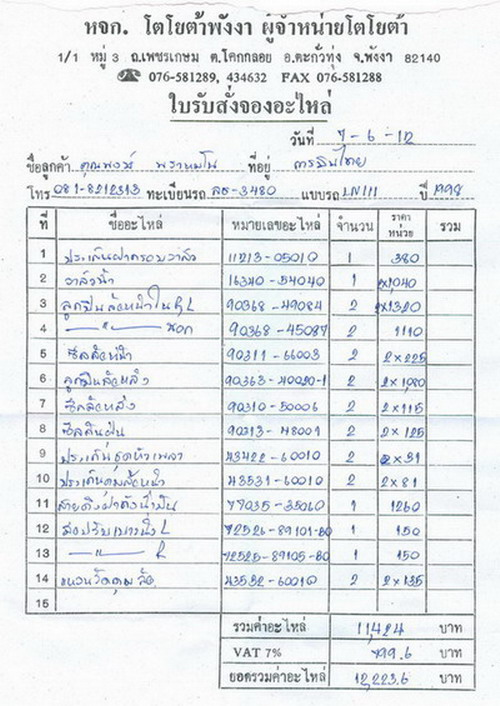 หจก. โตโยต้าพังงา ผู้จำหน่ายโตโยต้า
1/1 หมู่ 3 ถ.เพชรเกษม ต.โคกกลอย อ.ตะกั่วทุ่ง จ.พังงา 82140
☎ 076-581289, 434632 FAX 076-581288
ใบรับสั่งจองอะไหล่
วันที่ 7-6-12
ชื่อลูกค้า คุณพงษ์ ที่อยู่ การบินไทย
โทร 081-8212313 ทะเบียนรถ ลธ-3480 แบบรถ LN111 ปี 1998
ที่ ชื่ออะไหล่ หมายเลขอะไหล่ จำนวน ราคาหน่วย รวม
1 ประเก็นฝาครอบวาล์ว 11213-05010 1 380
2 วาล์วน้ำ 16340-54040 1 2x1,040
3 ลูกปืนล้อหน้าใน R,L 90368-49084 2 2x1320
4 —"— นอก 90368-45087 2 1110
5 ซีลล้อหน้า 90311-66003 2 2x225
6 ลูกปืนล้อหลัง 90363-40020-1 2 2x1,080
7 ซีลล้อหลัง 90310-50006 2 2x115
8 ซีลกันฝุ่น 90313-48001 2 2x125
9 ประเก็นชุดหัวเพลา 43422-60010 2 2x31
10 ประเก็นดุมล้อหน้า 43531-60010 2 2x81
11 สายดึงฝาถังน้ำมัน 77035-35060 1 1260
12 L 72526-89101-B0 1 150
13 —"— R 72525-89105-B0 1 150
14 แหวนวัดดุมล้อ 43532-60010 2 2x135
15
รวมค่าอะไหล่ 11,424 บาท
VAT 7% 799.6 บาท
ยอดรวมค่าอะไหล่ 12,223.6 บาท